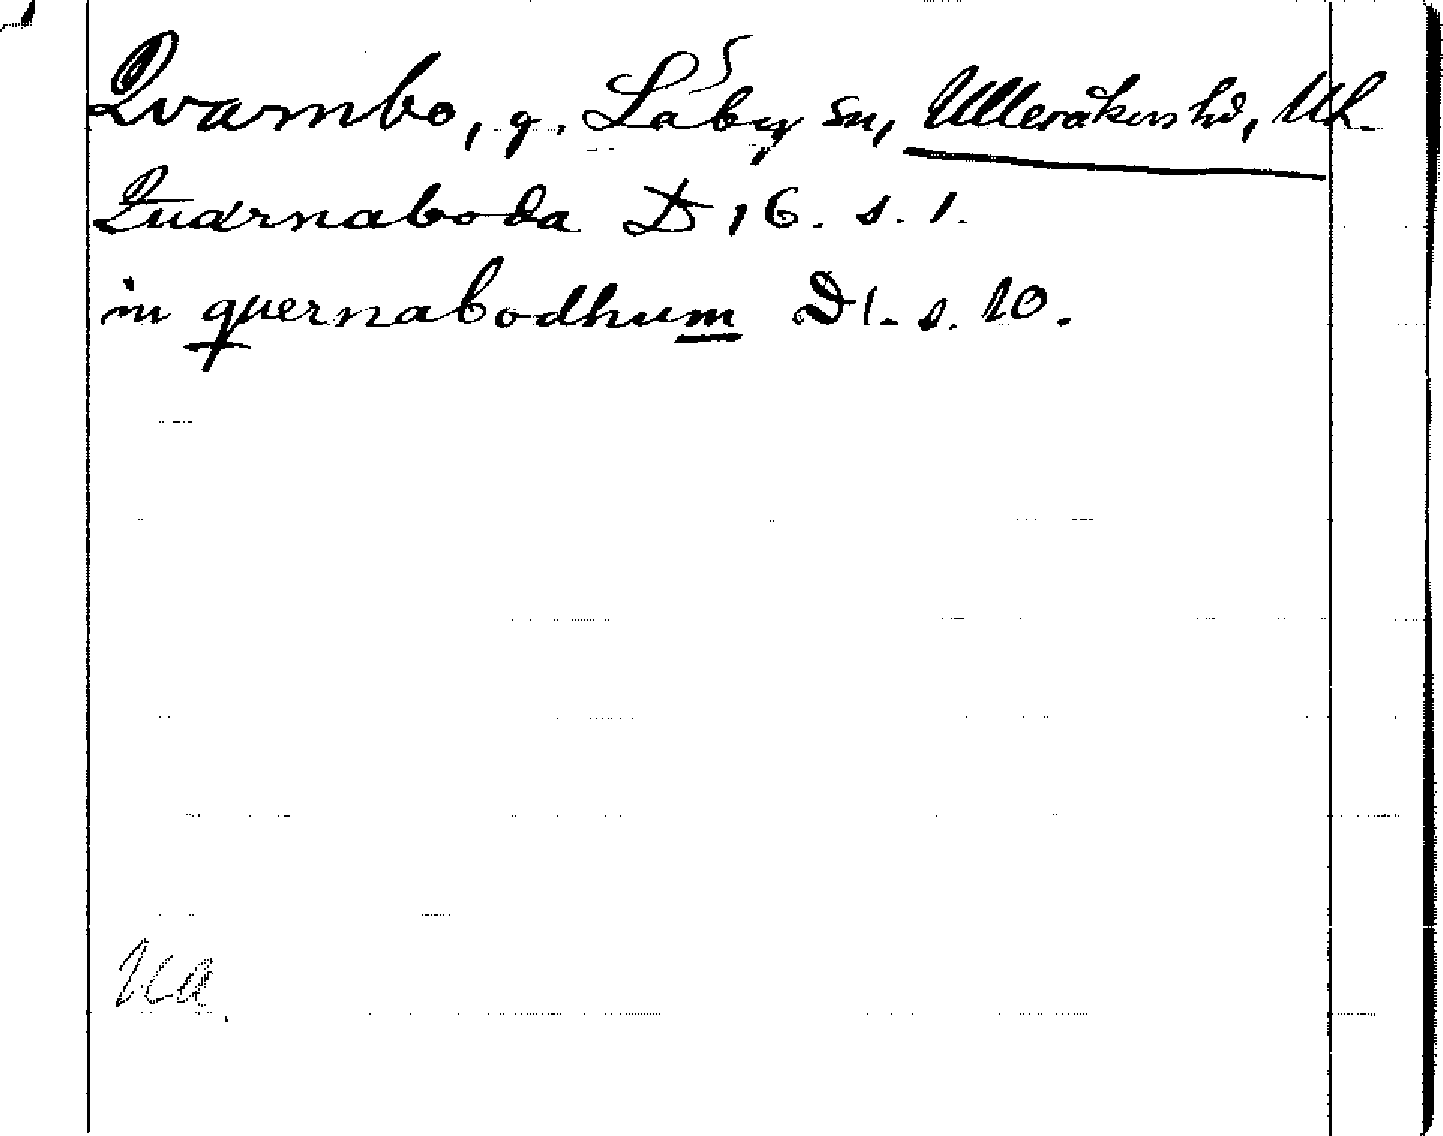 Qvarnbo, g. Läby sn, Ulleråkers hd, Upl.
Quarnaboda D 16. s. 1.
in quernabodhum D 1. s. 10.